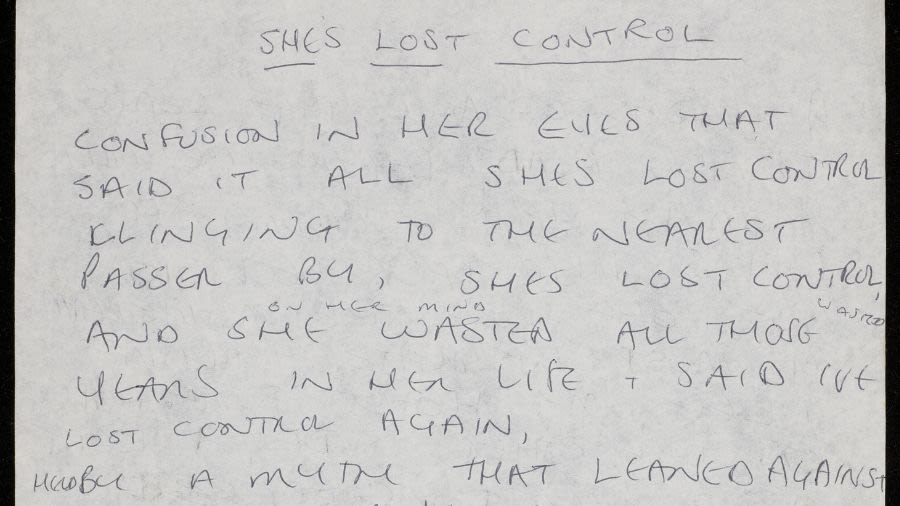 SHES LOST CONTROL
CONFUSION IN HER EYES THAT
SAID IT ALL SHES LOST CONTROL
CLINGING TO THE NEAREST
PASSER BY, SHES LOST CONTROL,
ON HER MIND
WASTED
AND SHE WASTED ALL THOSE
YEARS IN HER LIFE + SAID IVE
LOST CONTROL AGAIN,
HELD BY A MYTH THAT LEANED AGAINST